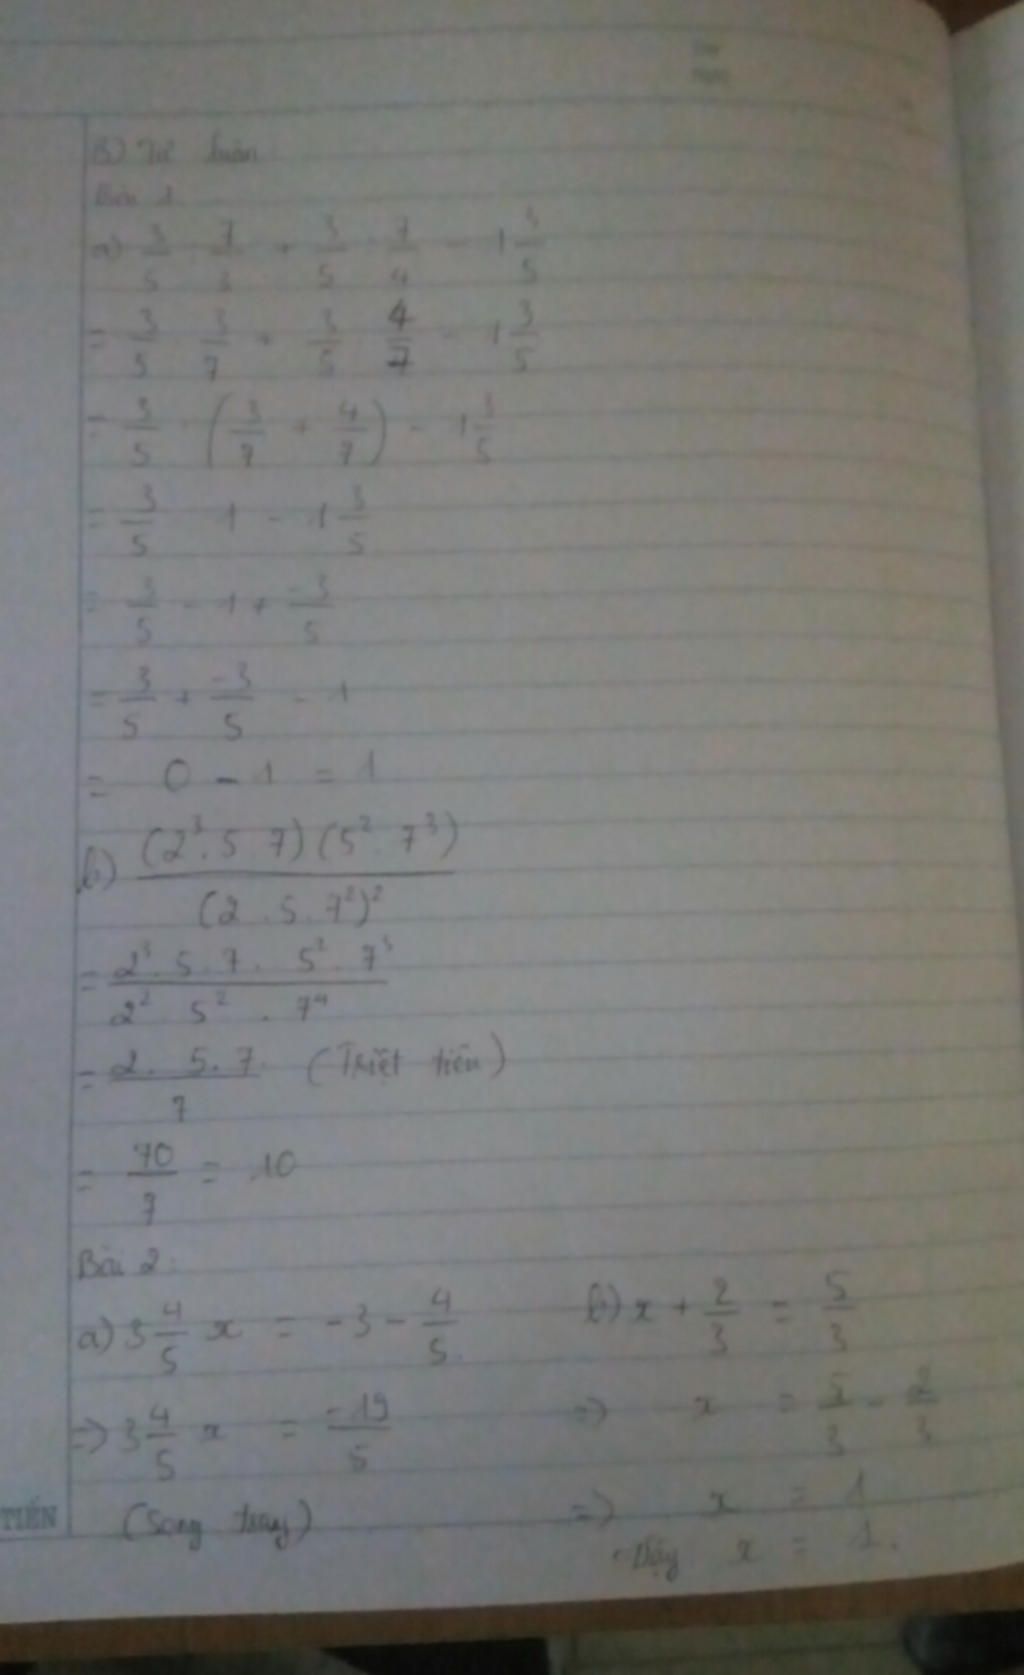 B) Tự luận
Bài 1
a) 3/5 . 7/3 + 3/5 . 7/4 - 1 3/5
= 3/5 . 3/7 + 3/5 . 4/7 - 1 3/5
= 3/5 . (3/7 + 4/7) - 1 3/5
= 3/5 . 1 - 1 3/5
= 3/5 - 1 + -3/5
= 3/5 + -3/5 - 1
= 0 - 1 = 1
b) (2³.5.7)(5².7³) / (2.5.7²)²
= 2³.5.7.5².7³ / 2².5².7⁴
= 2.5.7 / 7 (Triệt tiêu)
= 70/7 = 10
Bài 2:
a) 3 4/5 x = -3 - 4/5
=> 3 4/5 x = -19/5
(Sang trang)
b) x + 2/3 = 5/3
=> x = 5/3 - 2/3
=> x = 1
Vậy x = 1.
TIẾN